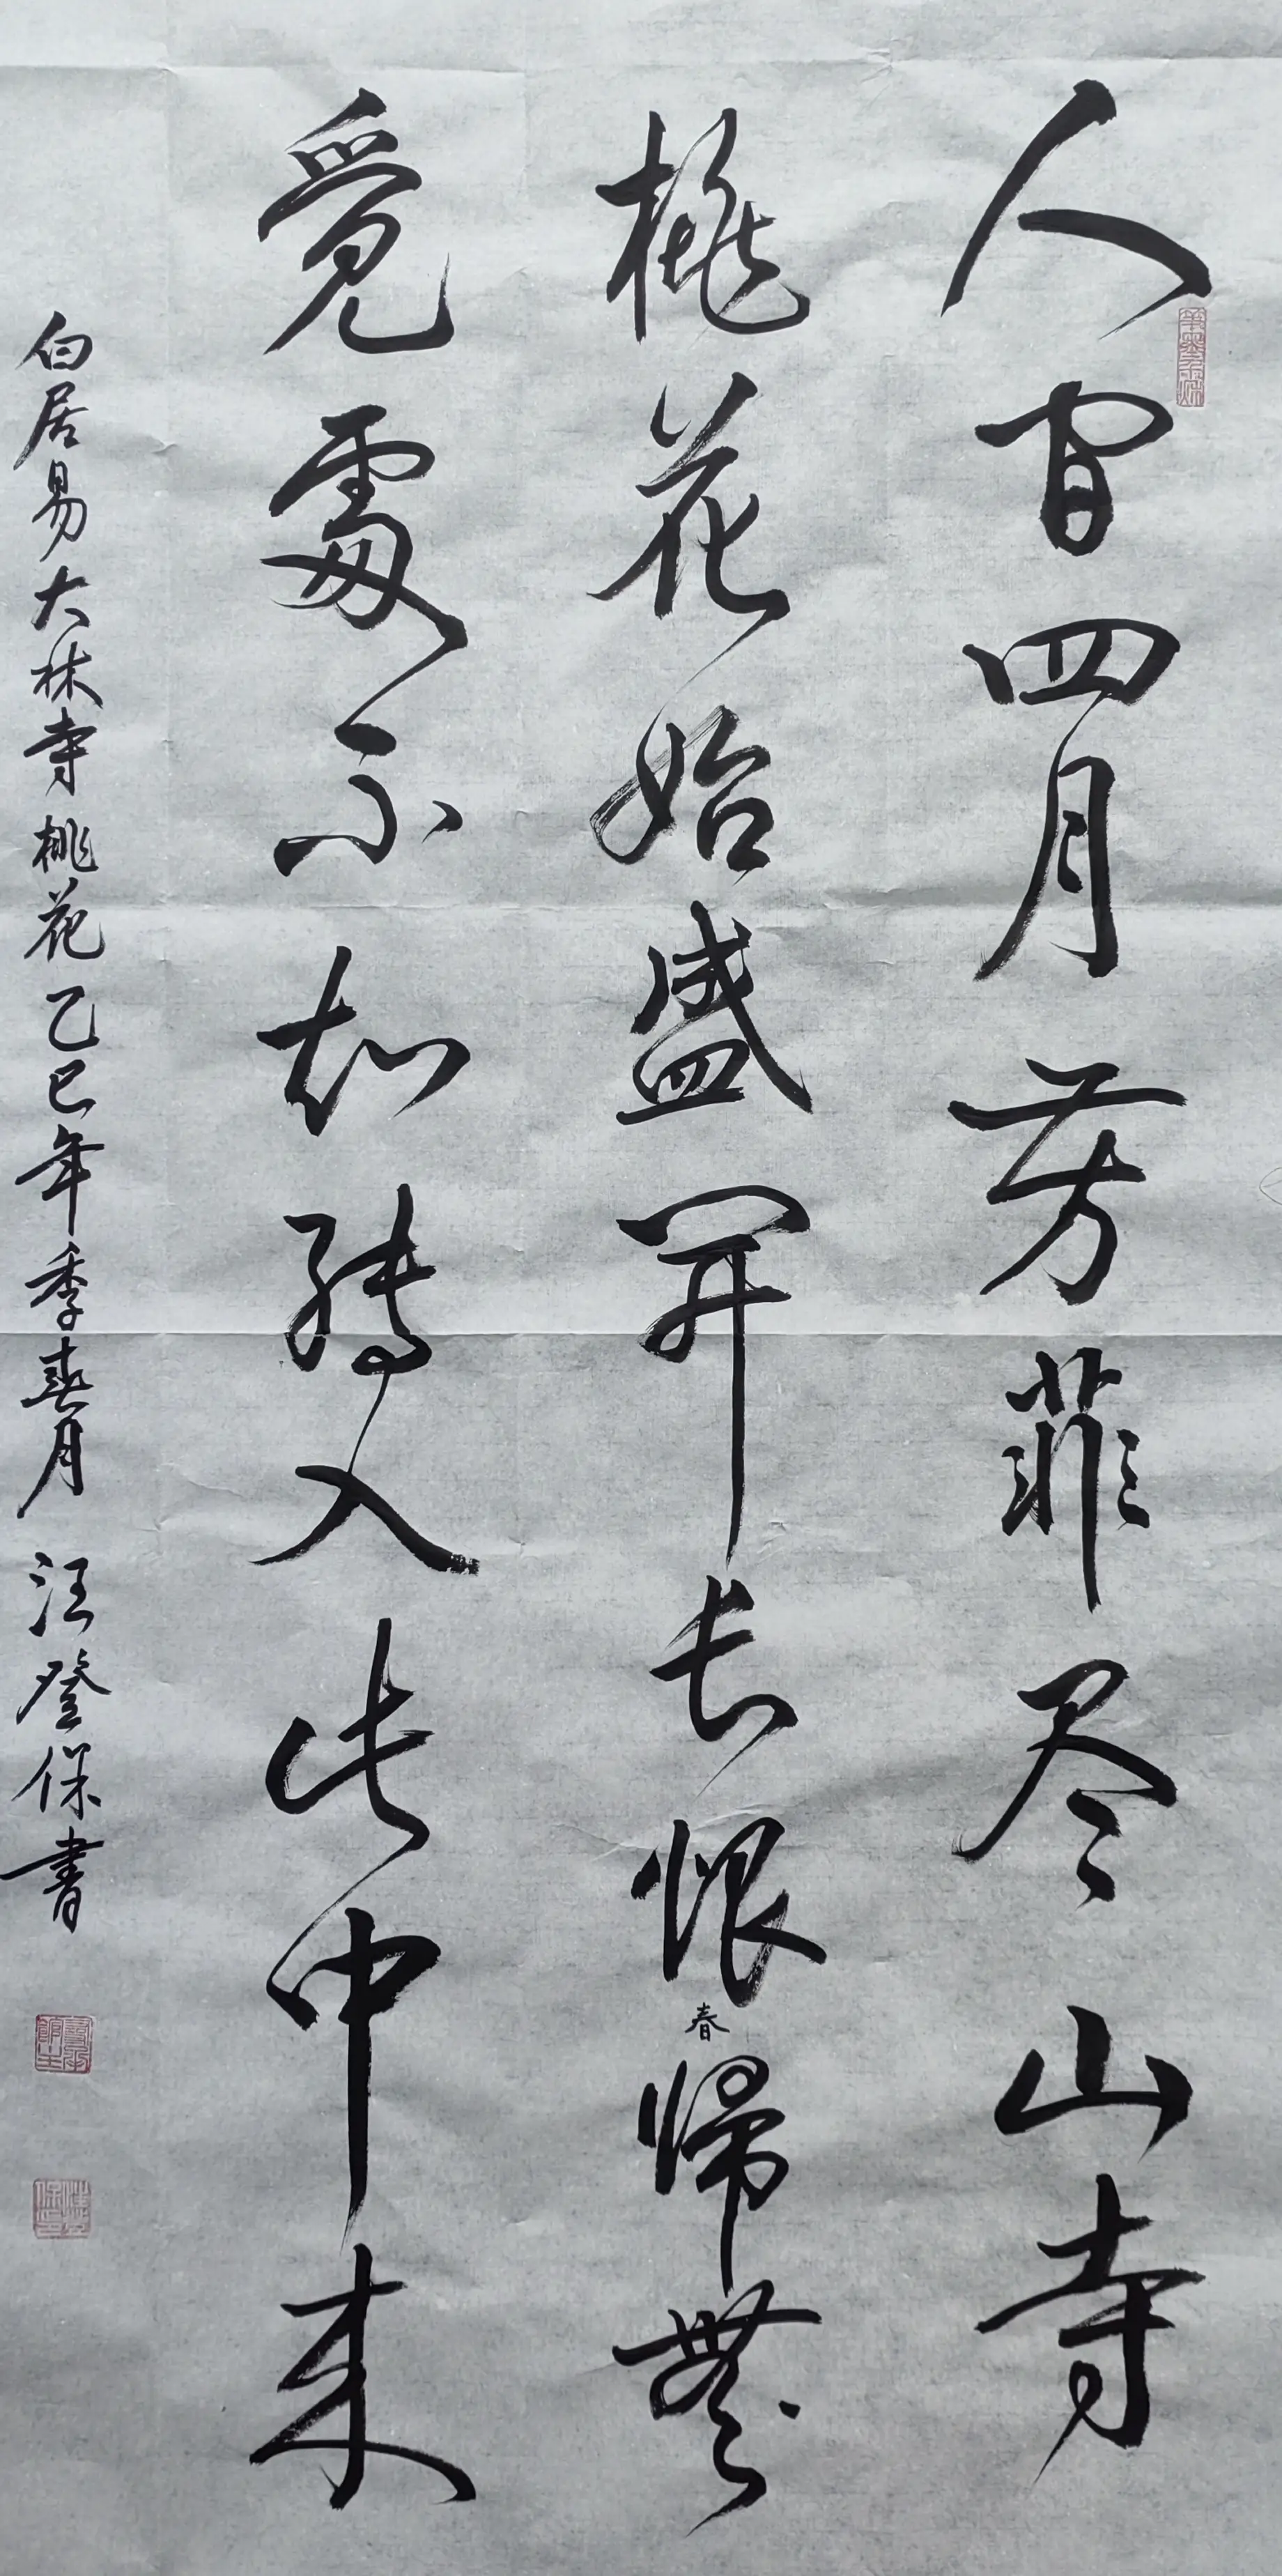 人间四月芳菲尽山寺
桃花始盛開长恨春歸無
覓處不知转入此中来
白居易大林寺桃花乙巳年季春月汪登保書